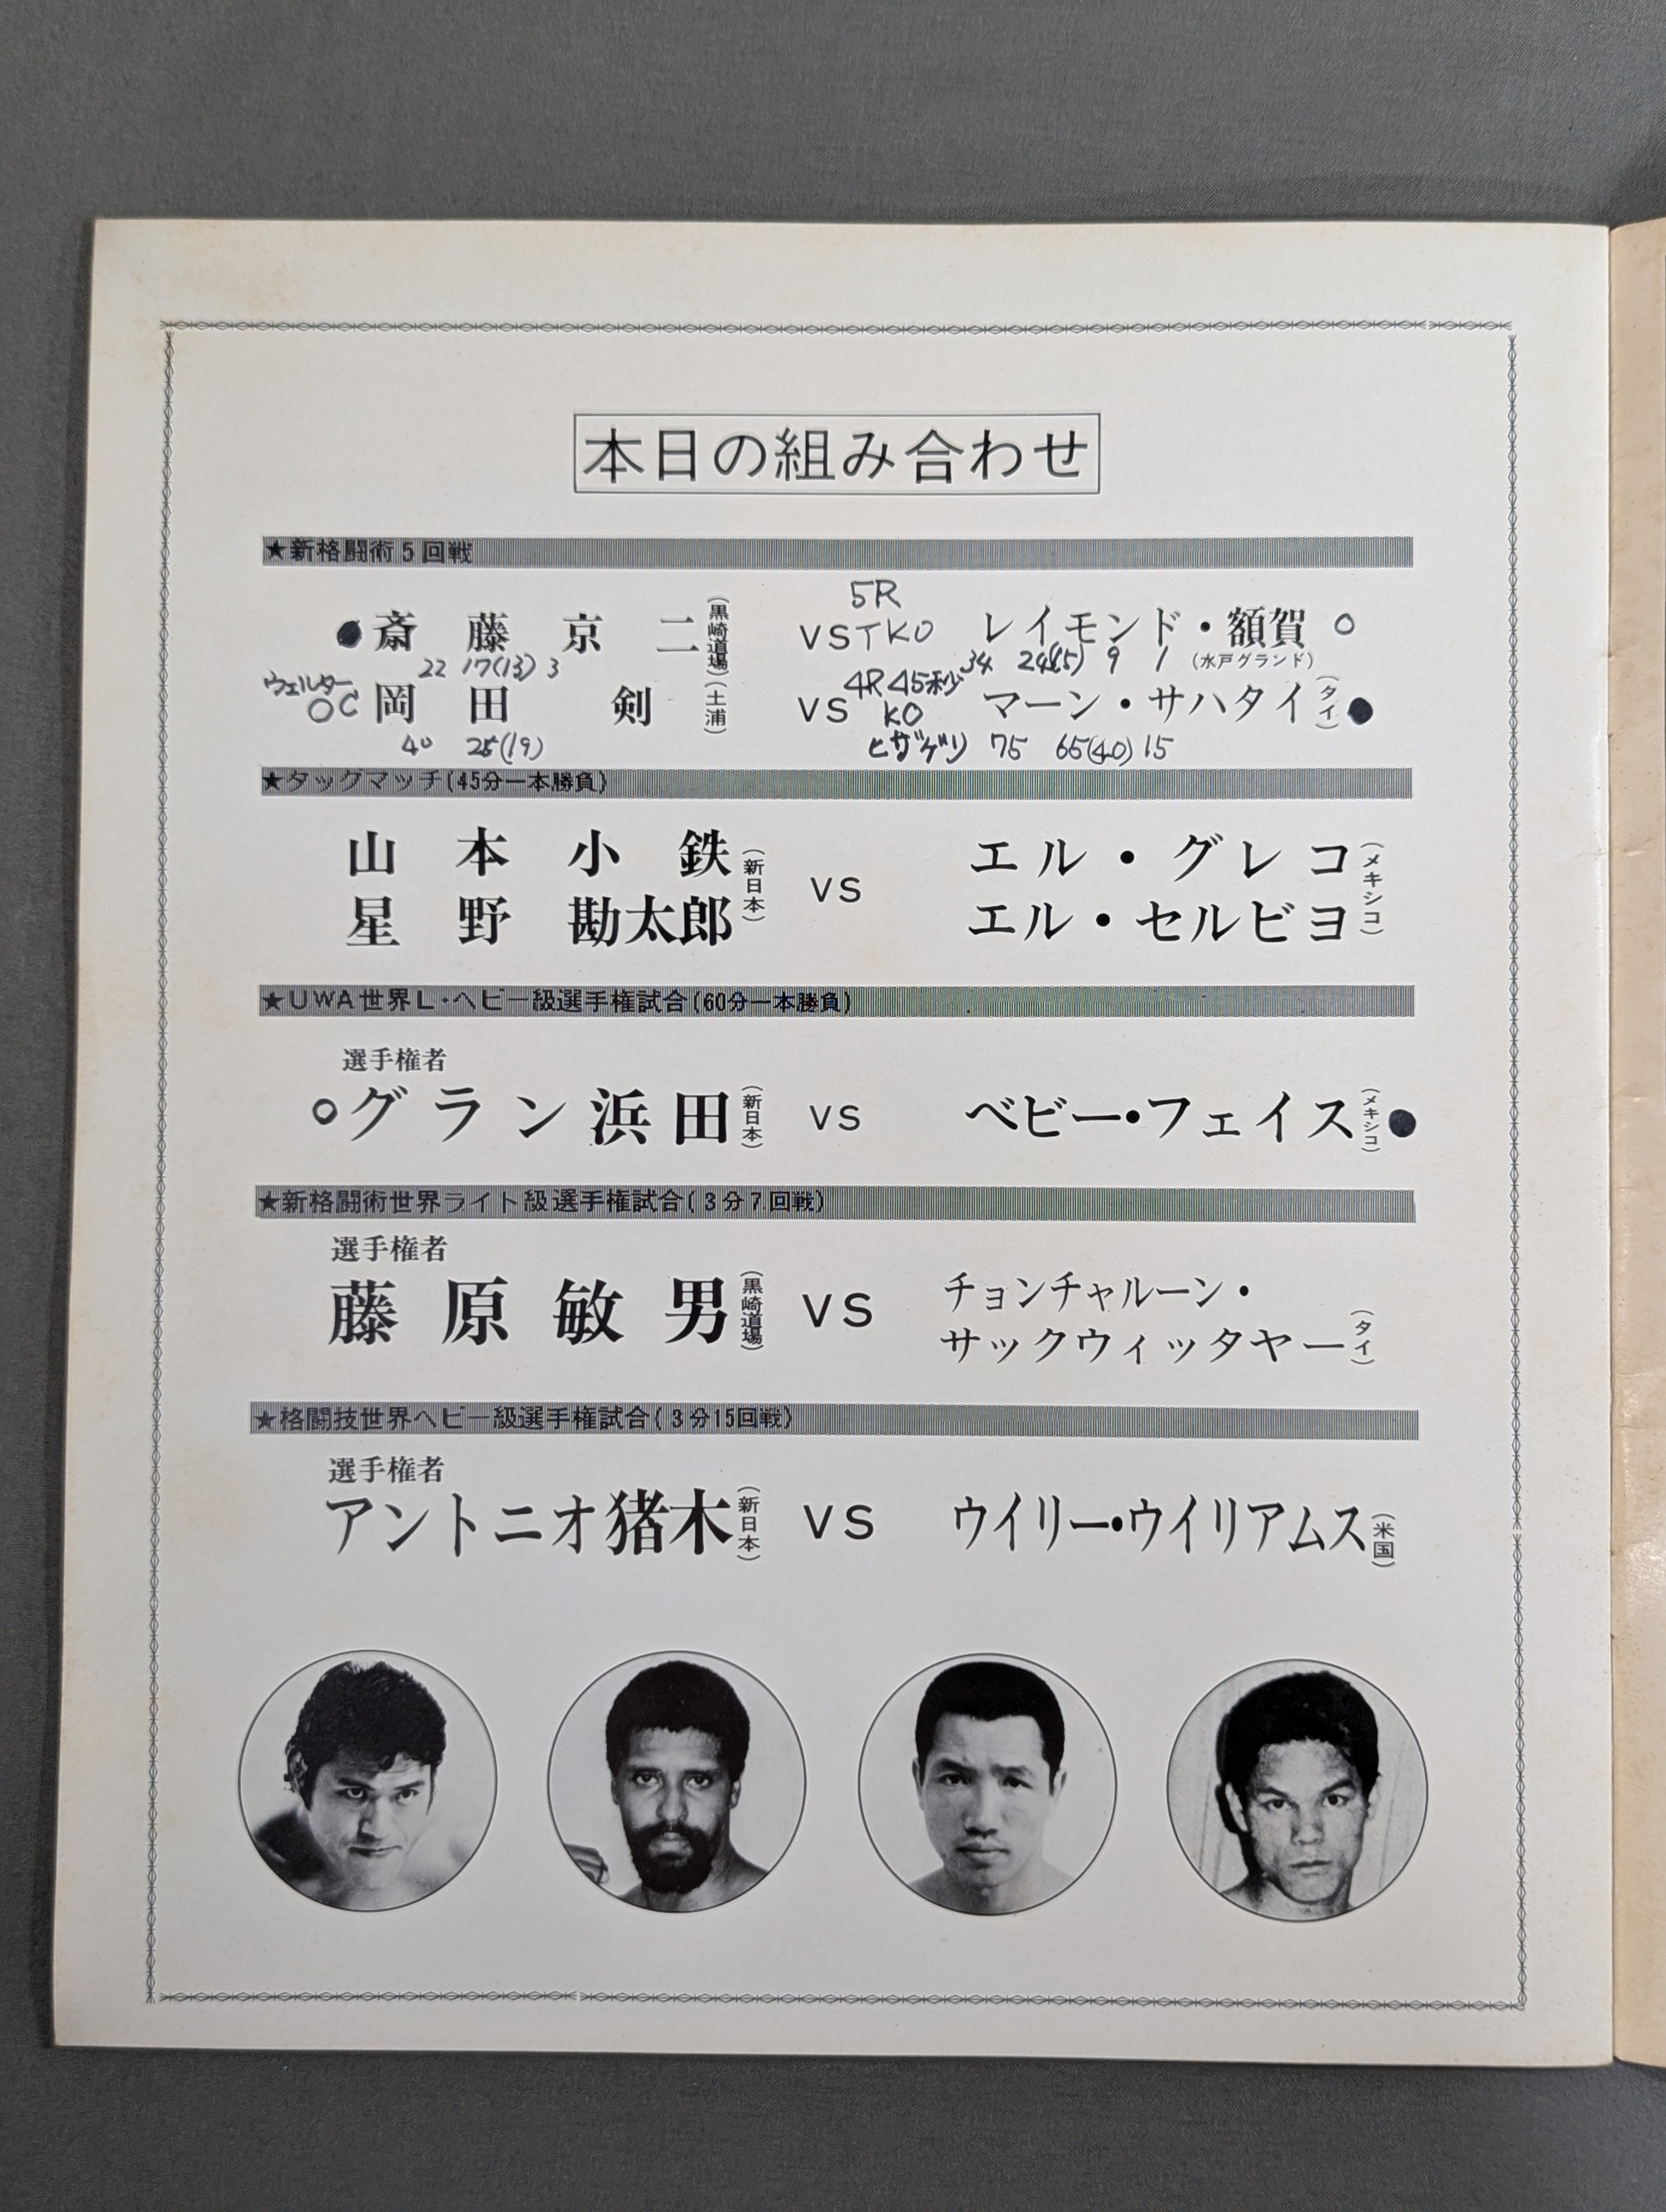 本日の組み合わせ
★新格闘術5回戦
5R
●斎藤京二(黒崎道場) VS TKO レイモンド・額賀 ○
22 17(13) 3 34 24(15) 9 1 (水戸グランド)
ウェルター 4R 45秒
○C 岡田剣(土浦) VS KO マーン・サハタイ(タイ)●
40 25(19) ヒザゲリ 75 65(40) 15
★タッグマッチ(45分一本勝負)
山本小鉄 エル・グレコ
(新日本) VS (メキシコ)
星野勘太郎 エル・セルビヨ
★UWA世界L・ヘビー級選手権試合(60分一本勝負)
選手権者
○グラン浜田(新日本) VS ベビー・フェイス(メキシコ)●
★新格闘術世界ライト級選手権試合(3分7回戦)
選手権者
藤原敏男(黒崎道場) VS チョンチャルーン・
サックウィッタヤー(タイ)
★格闘技世界ヘビー級選手権試合(3分15回戦)
選手権者
アントニオ猪木(新日本) VS ウイリー・ウイリアムス(米国)